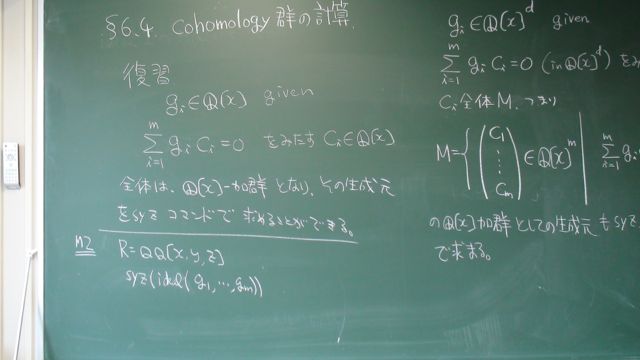 §6.4. Cohomology 群の計算.
復習
gᵢ∈Q[x] given
∑_{i=1}^{m} gᵢ Cᵢ = 0 をみたす Cᵢ∈Q[x]
全体は、Q[x]-加群となり、その生成元
を syz コマンドで求めることができる。
M2 R=QQ[x,y,z]
syz(ideal(g₁,…,gₘ))
gᵢ∈Q[x]^d given
∑_{i=1}^{m} gᵢ Cᵢ = 0 (in Q[x]^d) をみ
Cᵢ 全体 M, つまり
M={(C₁ ⋮ Cₘ)∈Q[x]^m | ∑_{i=1}^{m} gᵢ
の Q[x]加群としての生成元も syz
で求まる。